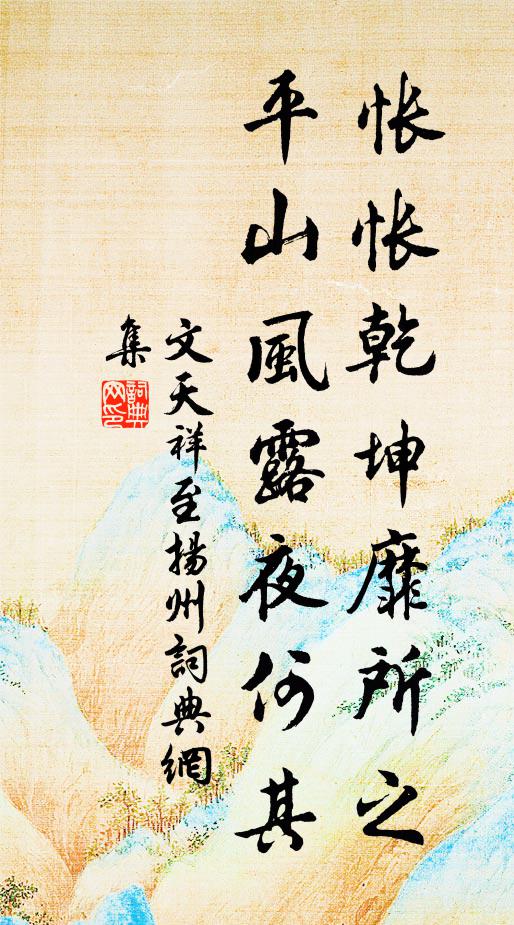 悵悵乾坤靡所之
平山風露夜何其
文天祥至揚州詞典網
集
詞典
网印